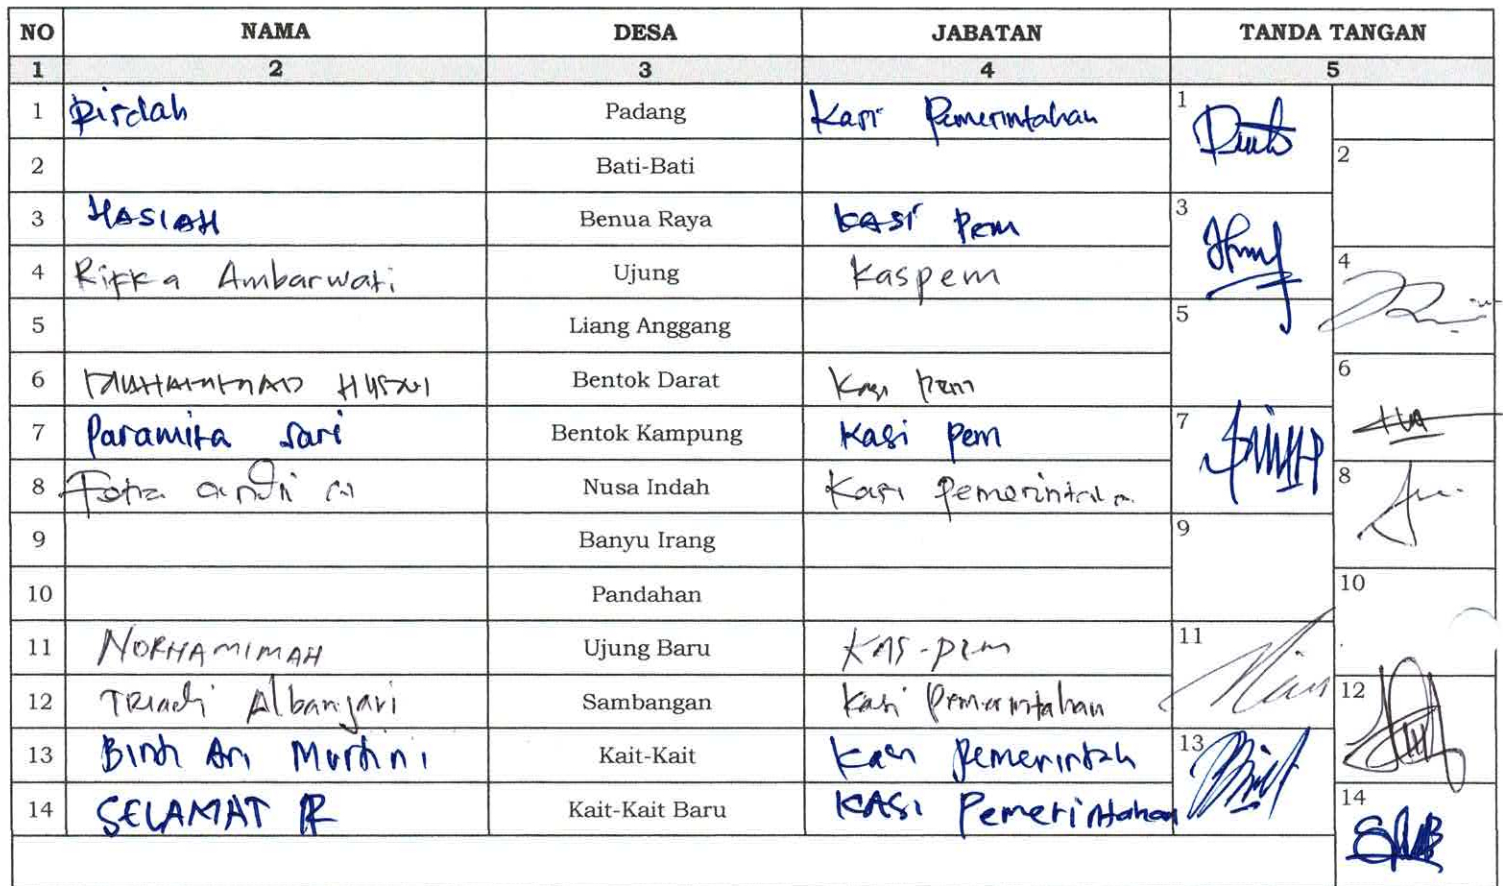 NO NAMA DESA JABATAN TANDA TANGAN
1 2 3 4 5
1 Rirdah Padang Kasi Pemerintahan 1
2 Bati-Bati 2
3 HASIAH Benua Raya KASI Pem 3
4 Rifka Ambarwati Ujung Kaspem 4
5 Liang Anggang 5
6 MUHAMMAD HUSNI Bentok Darat Kasi Pem 6
7 Paramita Sari Bentok Kampung Kasi Pem 7
8 andi Nusa Indah Kasi 8
9 Banyu Irang 9
10 Pandahan 10
11 NORHAMIMAH Ujung Baru Kas-pem 11
12 TRIadi Albanjari Sambangan Kasi Pemerintahan 12
13 Binti Ari Murtini Kait-Kait Kasi Pemerintah 13
14 SELAMAT R Kait-Kait Baru KASI Pemerintahan 14